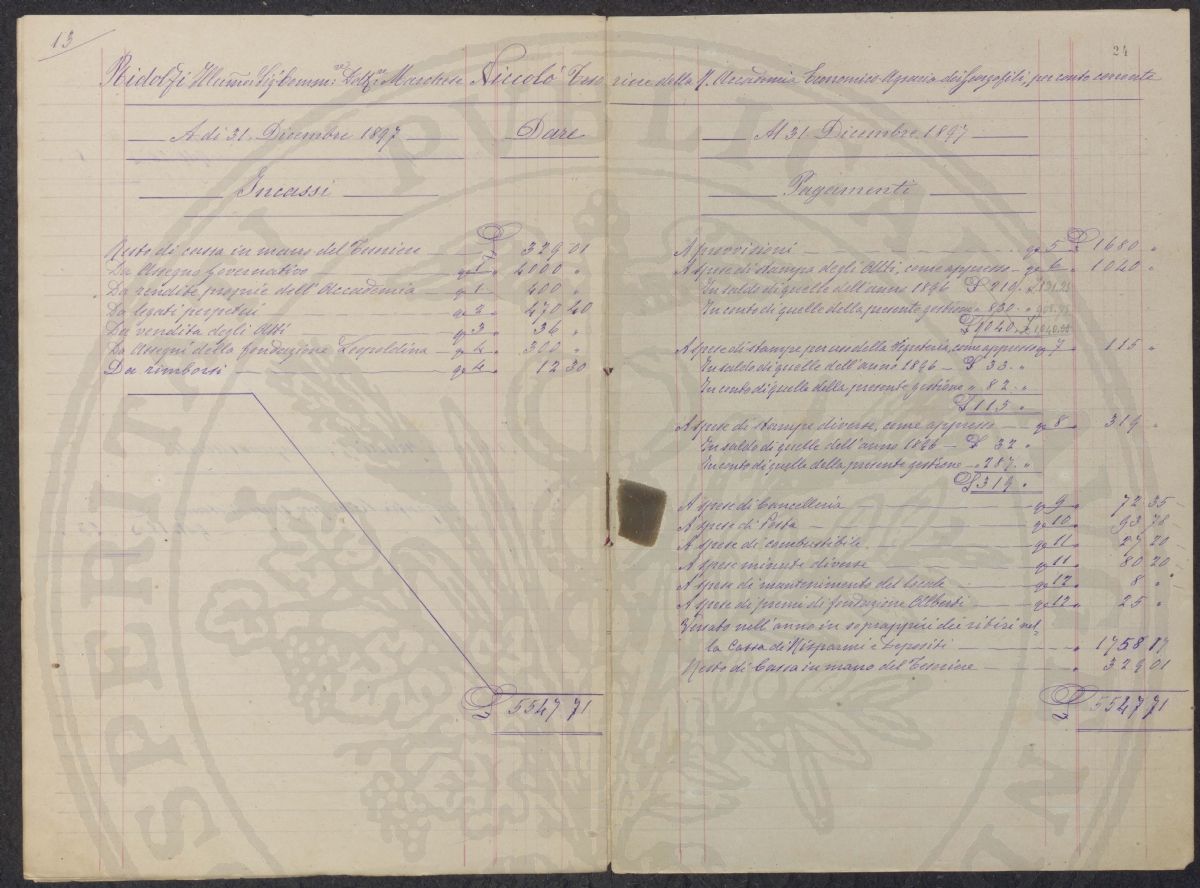 13
24
Ridolfi Illmo Sig. Comm. Dott. Marchese Niccolò Tesoriere della R. Accademia Economico-Agraria dei Georgofili, per conto corrente
A dì 31. Dicembre 1897
Dare
Incassi
Resto di cassa in mano del Tesoriere — £ 329 01
Da Assegno governativo — 1 " 4000 "
Da rendite proprie dell'Accademia — 1 " 400 "
Da legati perpetui — 2 " 470 40
Da vendita degli Atti — 3 " 36 "
Da Assegni della fondazione Leopoldina — 4 " 300 "
Da rimborsi — 4 " 12 30
£ 5547 71
Al 31 Dicembre 1897
Pagamenti
A provvisioni — 5 £ 1680 "
A spese di stampa degli Atti, come appresso — 6 " 1040 "
In saldo di quelle dell'anno 1896 £ 210
In conto di quelle della presente gestione " 830 "
£ 1040 "
A spese di stampe per uso della Segreteria, come appresso 7 " 115 "
In saldo di quelle dell'anno 1896 — £ 33 "
In conto di quelle della presente gestione " 82 "
£ 115 "
A spese di stampe diverse, come appresso — 8 " 319 "
In saldo di quelle dell'anno 1896 — £ 32 "
In conto di quelle della presente gestione — 287 "
£ 319 "
A spese di Cancelleria — 9 " 72 35
A spese di Posta — 10 " 93 78
A spese di combustibile — 11 " 20
A spese minute diverse — 11 " 80 20
A spese di mantenimento del locale — 12 " 8 "
A spese di premi di fondazione Alberti — 12 " 25 "
Versato nell'anno in soprappiù dei ritiri nel-
la Cassa di Risparmi e Depositi — " 1758 17
Resto di Cassa in mano del Tesoriere — " 329 01
£ 5547 71